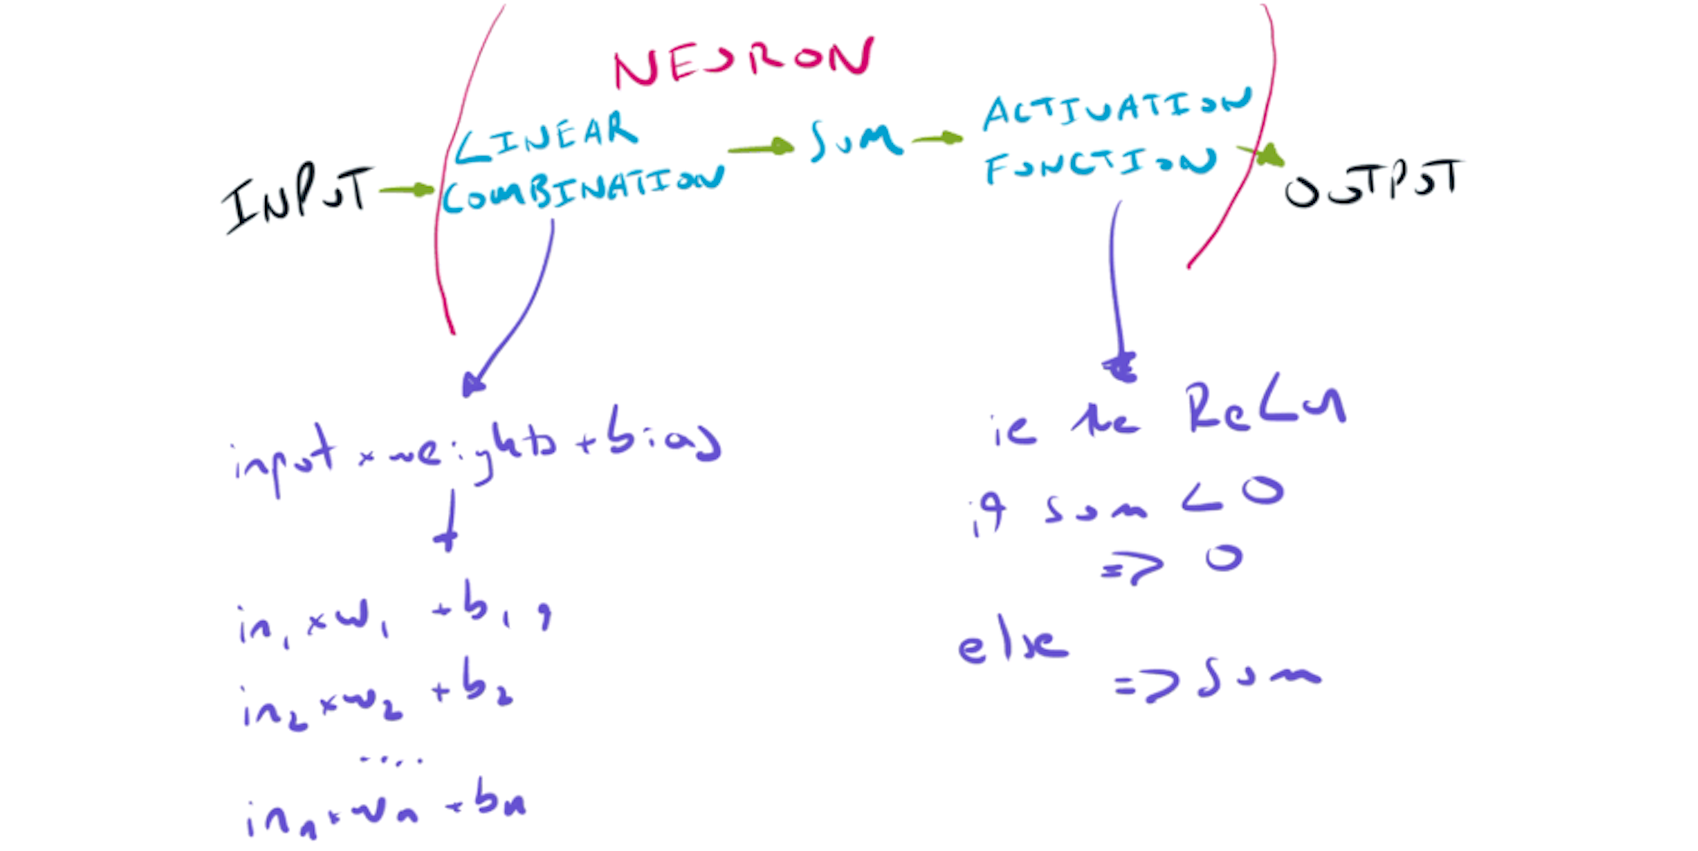 NEURON
INPUT → LINEAR COMBINATION → SUM → ACTIVATION FUNCTION → OUTPUT
input × weights + bias
in₁ × w₁ + b₁ ,
in₂ × w₂ + b₂
....
inₙ × wₙ + bₙ
ie the ReLu
if sum < 0
=> 0
else
=> sum